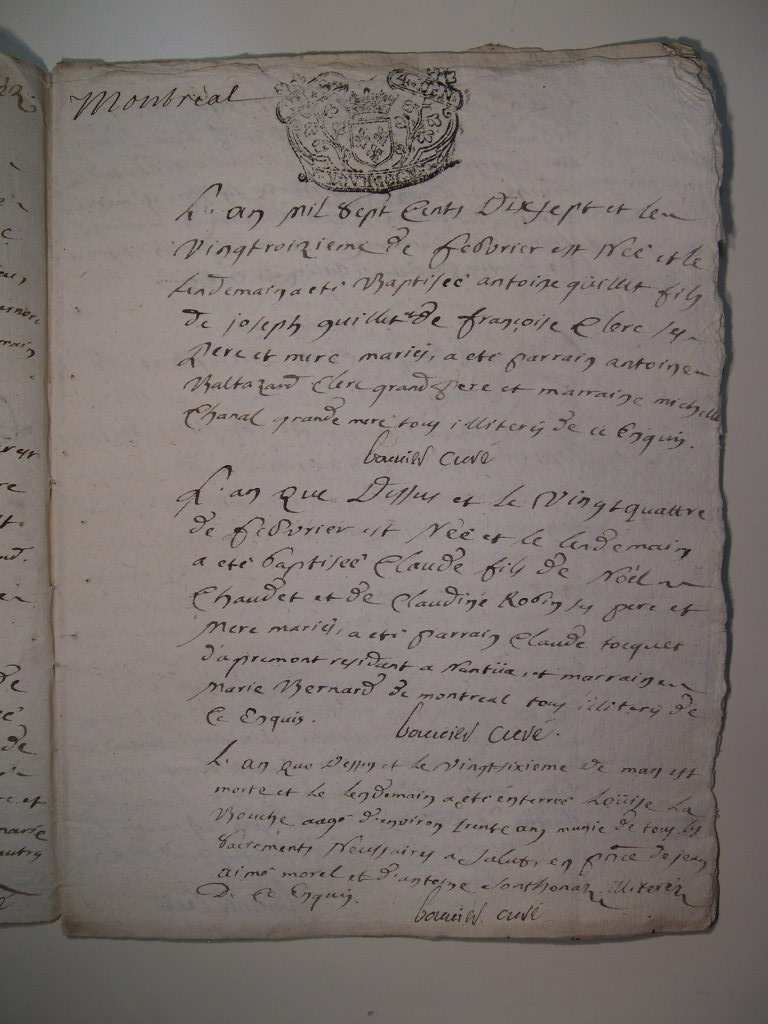 Montreal
L'an mil sept cents Dixsept et le
vingtroizieme de febvrier est Néé et le
lendemain a eté Baptiséé antoine quillet fils
de joseph quillet et de françoise Clerc ses
pere et mere mariés, a eté parrain antoine
Baltazard Clerc grand pere et marraine michelle
Chanal grande mere tous illiterés de ce Enquis.
bouvier curé
L'an que Dessus et le vingt quattre
de febvrier est Néé et le lendemain
a eté baptiséé Claude fils de Noël
Chaudet et de Claudine Robin ses pere et
Mere mariés, a eté parrain Claude tocquet
d'apremont residant a Nantüa, et marraine
Marie Bernard de montreal tous illiterés de
Ce Enquis.
bouvier curé.
L'an que Dessus et le vingtsixieme de mars est
morte et le lendemain a eté enterréé Loüise La
Bouche aagé d'environ trente ans munie de tous les
sacrements Necessaires a salut, en pnce de jean
aimé morel et d'antoine Sonthonax illiterés
De Ce Enquis.
bouvier curé